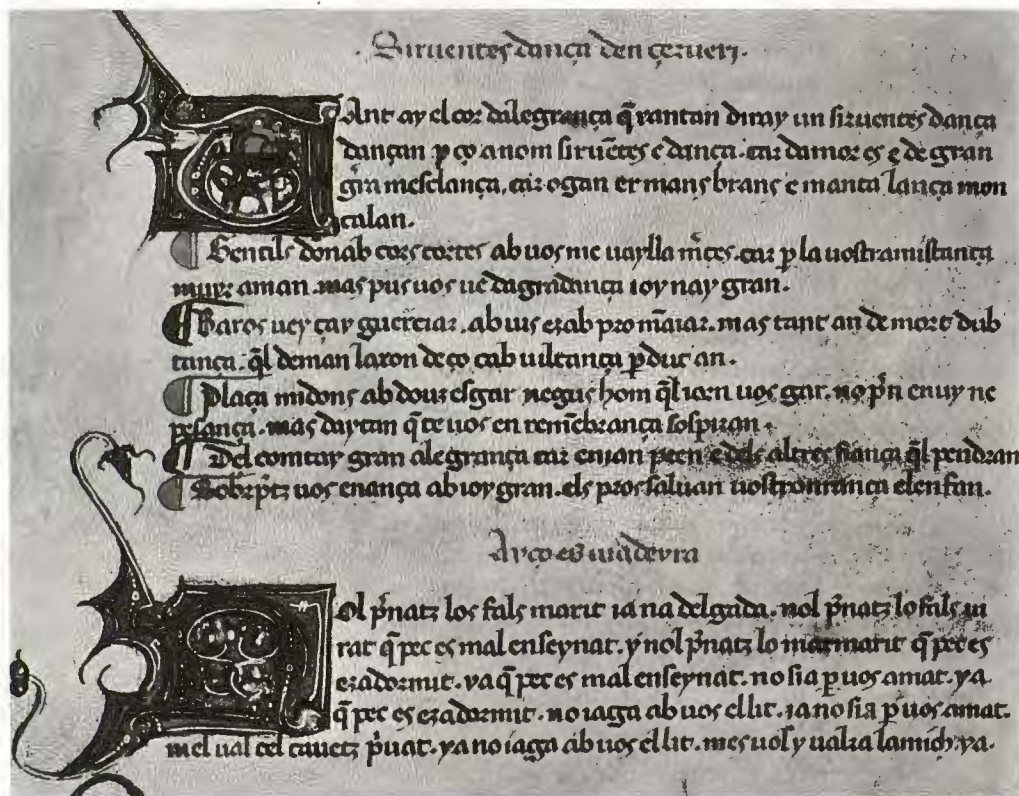 Siruentes dança den çerueri.
Tant ay el cor dalegrança q̄ vantan diray un siruentes dança
dançan p̱ ço a nom siruētes e dança. car damor es e de gran
gͣra mesclança, car ogan er mans brans e manta lança mon
calan.
Gentils donab cors cortes ab uos me uaylla m̄ces. car p̱ la uostramistança
muyr aman. mas pus uos ue dagradança ioy nay gran.
Baros uey çay guerreiar. ab ius ez ab pro māiar. mas tant an de mort dub
tança. q̄l deman laxon de ço cab uiltança p̱dut an.
Plaça midons ab douz esgar negus hom q̄l ien uos gar. no p̄n enuy ne
pesança. mas daytan q̄ te uos en remēbrança sospiran.
Del comtay gran alegrança car enian pren e dels altres fiança q̄l pendran
Sobrep̄tz uos enança ab ioy gran. els pros saluan uostronrança elenfan.
Ayço es uiadeyra
Nol p̄natz los fals marit iana delgada. nol p̄natz lo fals iu
rat q̄ pec es mal enseynat. y nol p̄natz lo mal marit q̄ pec es
ez adormit. ya q̄ pec es mal enseynat. no sia p̱ uos amat. ya
q̄ pec es ez adormit. no iaga ab uos el lit. ia no sia p̱ uos amat.
mel ual cel cauetz p̄uat. ya no iaga ab uos el lit. mes uol y ualra lamich. ya.